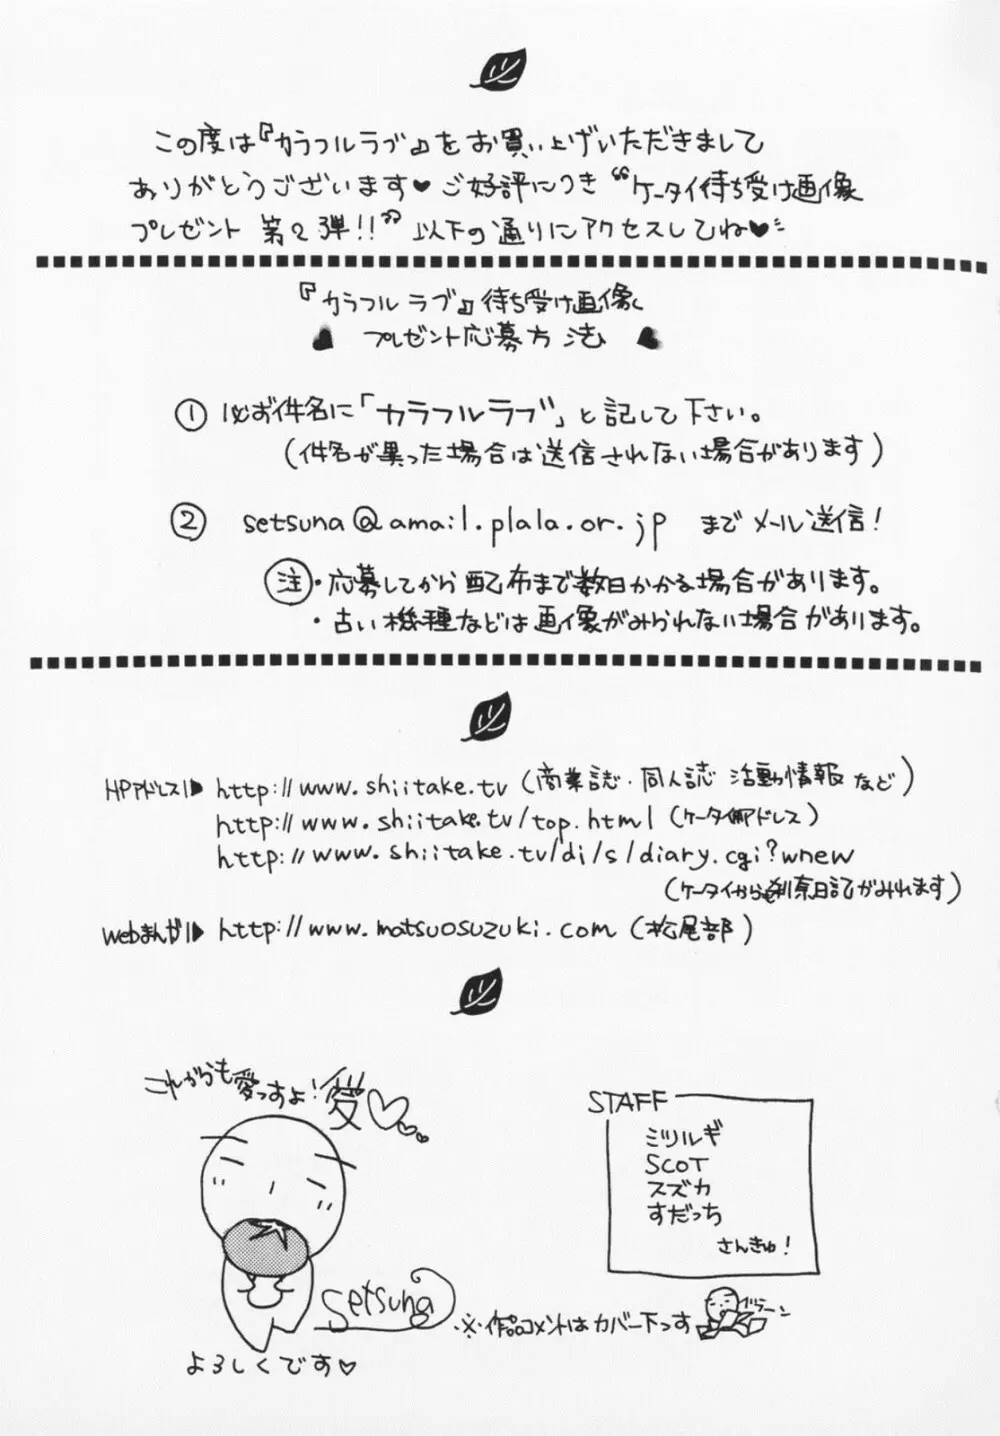 この度は『カラフルラブ』をお買い上げいただきまして
ありがとうございます♥ ご好評につき “ケータイ待ち受け画像
プレゼント 第2弾!!” 以下の通りにアクセスしてね♥
『カラフルラブ』待ち受け画像
プレゼント応募方法
① 必ず件名に「カラフルラブ」と記して下さい。
(件名が異った場合は送信されない場合があります)
② setsuna@amail.plala.or.jp までメール送信!
注・応募してから配布まで数日かかる場合があります。
・古い機種などは画像がみられない場合があります。
HPアドレス▶ http://www.shiitake.tv (商業誌・同人誌 活動情報 など)
http://www.shiitake.tv/top.html (ケータイ用アドレス)
http://www.shiitake.tv/di/s/diary.cgi?wnew
(ケータイからも刹奈日記がみれます)
Webまんが▶ http://www.matsuosuzuki.com (松尾部)
これからも愛っすよ!愛♡
Setsuna
よろしくです♡
STAFF
ミツルギ
SCOT
スズカ
すだっち
さんきゅ!
※作品コメントはカバー下っす